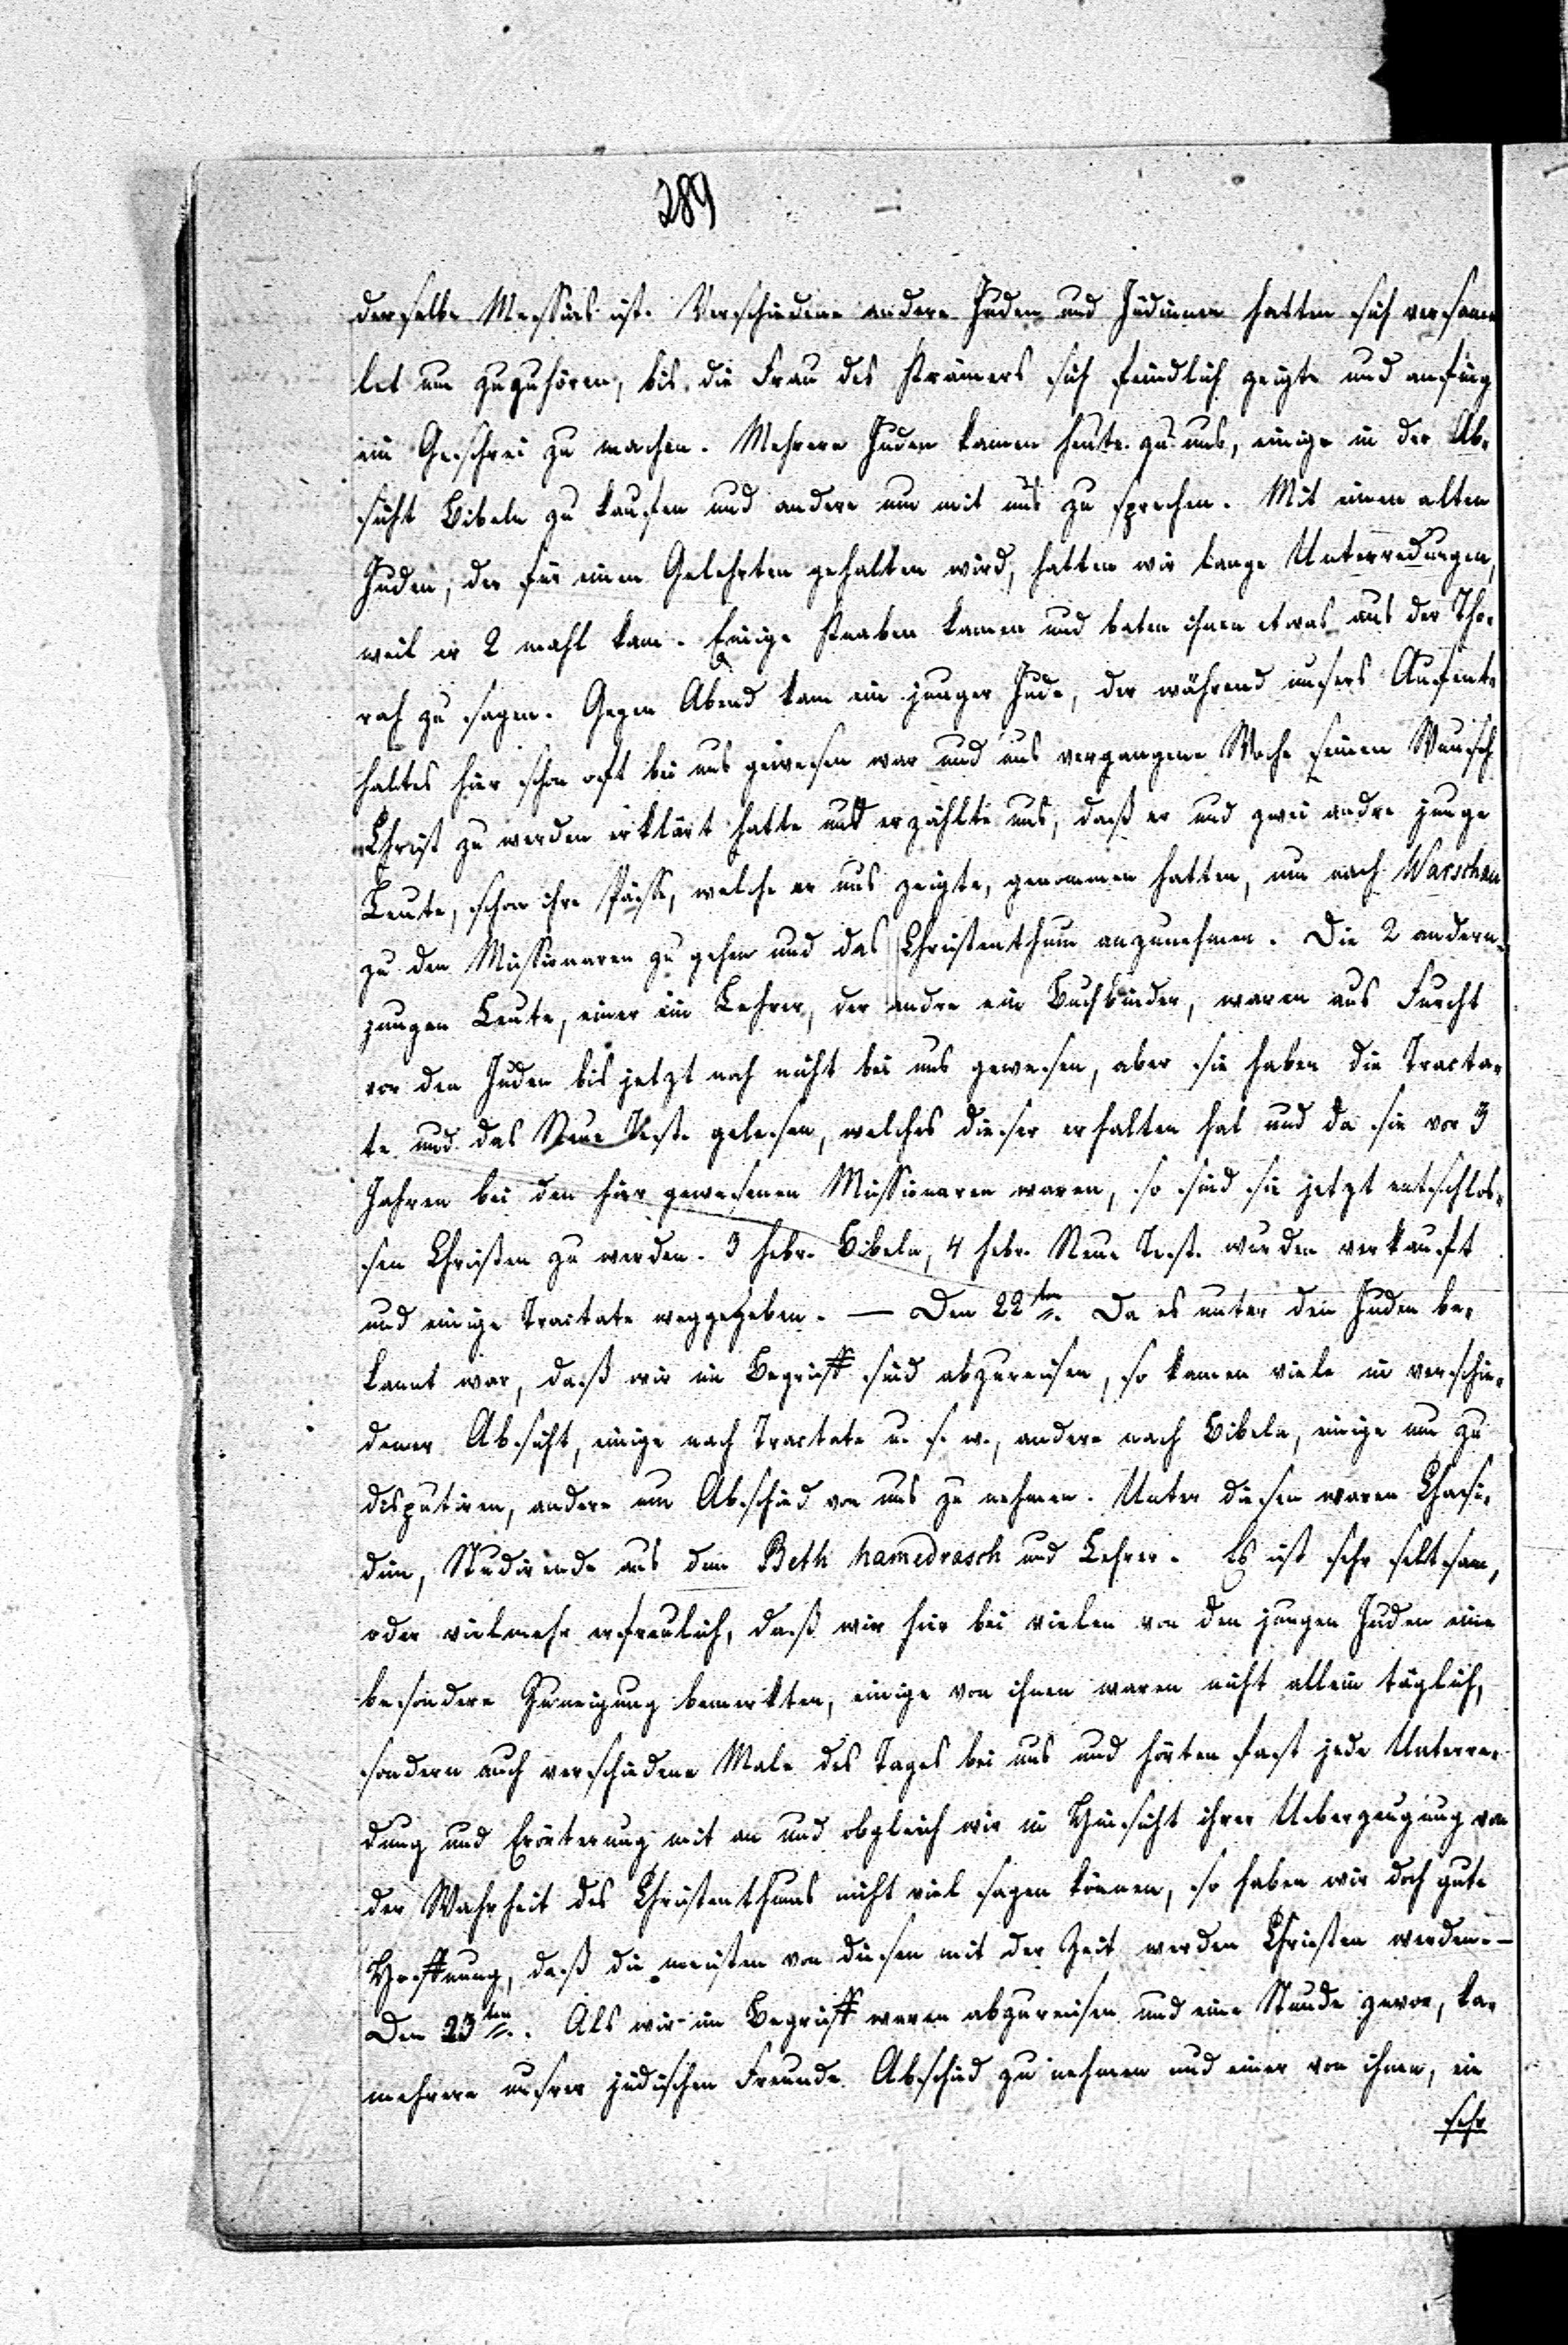 289
derselbe Messias ist. Verschiedene andere Juden und Jüdinnen hatten sich versam
let um zuzuhören, bis die Frau des Krämers sich feindlich zeigte und anfing
ein Geschrei zu machen. Mehrere Juden kamen heute zu uns, einige in der Ab-
sicht Bibeln zu kaufen und andere um mit uns zu sprechen. Mit einem alten
Juden, der für einen Gelehrten gehalten wird, hatten wir lange Unterredungen,
weil er 2 mahl kam. Einige Knaben kamen und baten ihnen etwas aus der Tho-
rah zu sagen. Gegen Abend kam ein junger Jude, der während unsers Aufent-
haltes hier schon oft bei uns gewesen war und uns vergangene Woche seinen Wunsch
Christ zu werden erklärt hatte und erzählte uns, daß er und zwei andre junge
Leute, schon ihre Pässe, welche er uns zeigte, genommen hatten, um nach Warschau
zu den Missionaren zu gehen und das Christenthum anzunehmen. Die 2 andern
jungen Leute, einer ein Lehrer, der andre ein Buchbinder, waren aus Furcht
vor den Juden bis jetzt noch nicht bei uns gewesen, aber sie haben die Tracta-
te und das Neue Test. gelesen, welches dieser erhalten hat und da sie vor 3
Jahren bei den hier gewesenen Missionaren waren, so sind sie jetzt entschlos-
sen Christen zu werden. 3 hebr. Bibeln, 4 hebr. Neue Test. wurden verkauft
und einige Tractate weggegeben. — Den 22ten. Da es unter den Juden be-
kannt war, daß wir im Begriff sind abzureisen, so kamen viele in verschie-
dener Absicht, einige nach Tractate u. s. w., andere nach Bibeln, einige um zu
disputiren, andere um Abschied von uns zu nehmen. Unter diesen waren Chasi-
dim, Studirende aus dem Beth hamedrasch und Lehrer. Es ist sehr seltsam,
oder vielmehr erfreulich, daß wir hier bei vielen von den jungen Juden eine
besondere Zuneigung bemerkten, einige von ihnen waren nicht allein täglich,
sondern auch verschiedene Male des Tages bei uns und hörten fast jede Unterre-
dung und Erörterung mit an und obgleich wir in Hinsicht ihrer Ueberzeugung von
der Wahrheit des Christenthums nicht viel sagen können, so haben wir doch gute
Hoffnung, daß die meisten von diesen mit der Zeit werden Christen werden. —
Den 23ten. Als wir im Begriff waren abzureisen und eine Stunde zuvor, ka-
mehrere unsrer jüdischen Freunde Abschied zu nehmen und einer von ihnen, ein
sehr